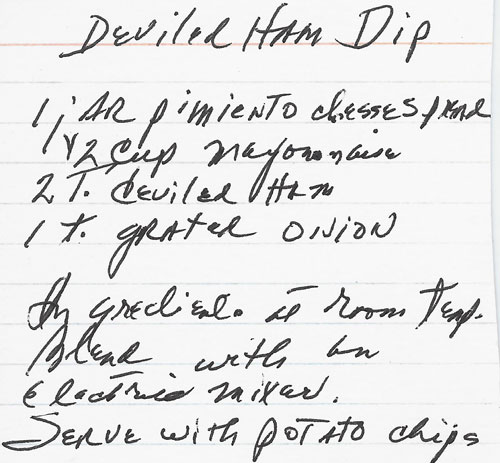 Deviled Ham Dip
1 jar pimiento cheese spread
1/2 cup mayonnaise
2 T. deviled Ham
1 t. grated onion
Ingredients at room temp.
Blend with an
electric mixer.
Serve with potato chips